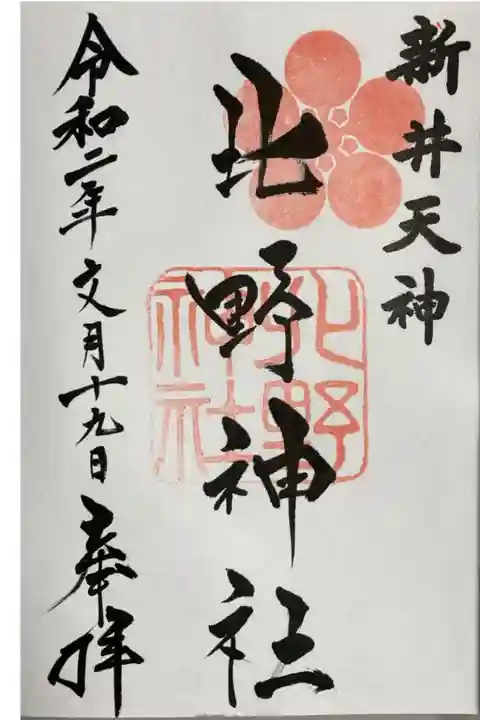 新井天神
北野神社
北野神社
令和二年文月十九日奉拝